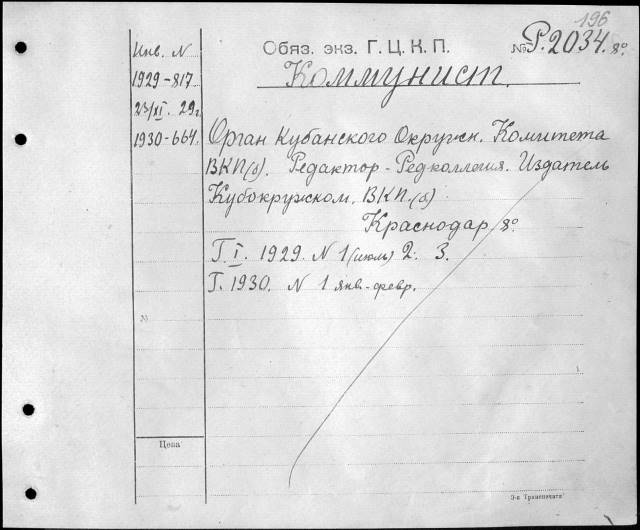 196
Обяз. экз. Г. Ц. К. П. № Р.2034. 8°
Коммунист.
Инв. N
1929-817
23/XI. 29 г.
1930-664.
Орган Кубанского Окружн. Комитета
ВКП(б). Редактор - Редколлегия. Издатель
Кубокружком. ВКП.(б)
Краснодар, 8°
Г. I. 1929. N 1 (июль) 2. 3.
Г. 1930. N 1 янв.-февр.
№
Цена
Э-я Транспечати